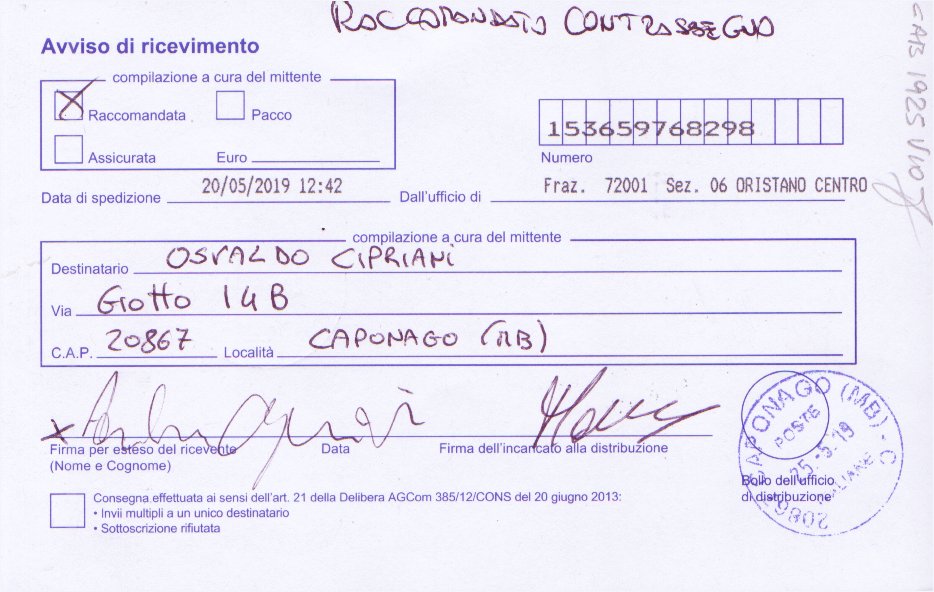 RACCOMANDATO CONTRASSEGNO
Avviso di ricevimento
compilazione a cura del mittente
Raccomandata
Pacco
Assicurata
Euro
153659768298
Numero
Data di spedizione 20/05/2019 12:42
Dall'ufficio di Fraz. 72001 Sez. 06 ORISTANO CENTRO
compilazione a cura del mittente
Destinatario OSVALDO CIPRIANI
Via GIOTTO 14B
C.A.P. 20867 Località CAPONAGO (MB)
Firma per esteso del ricevente
(Nome e Cognome)
Data
Firma dell'incaricato alla distribuzione
CAPONAGO (MB) - C
POSTE
25-5-19
20867
Bollo dell'ufficio
di distribuzione
Consegna effettuata ai sensi dell'art. 21 della Delibera AGCom 385/12/CONS del 20 giugno 2013:
• Invii multipli a un unico destinatario
• Sottoscrizione rifiutata